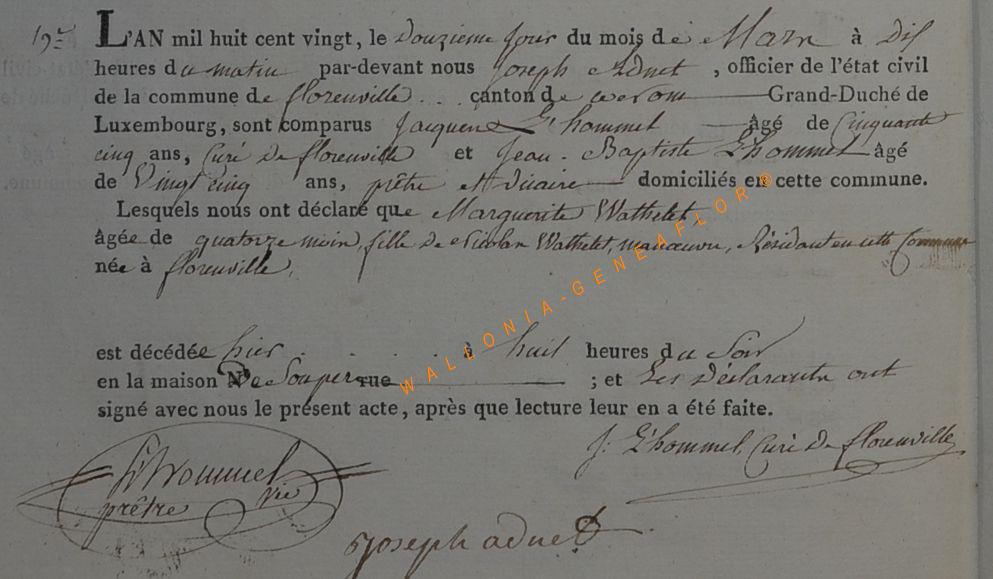 19e
L'AN mil huit cent vingt, le douzieme jour du mois de Mars à dix
heures du matin par-devant nous Joseph Adnet, officier de l'état civil
de la commune de florenville canton de Grand-Duché de
Luxembourg, sont comparus Jacques L'hommel âgé de Cinquante
cinq ans, Curé de florenville et Jean-Baptiste L'hommel âgé
de Vingt cinq ans, prêtre et Vicaire domiciliés en cette commune.
Lesquels nous ont déclaré que Marguerite Wathelet,
âgée de quatorze mois, fille de Nicolas Wathelet, manœuvre, Résidant en cette Commune
née à florenville,
est décédée hier à huit heures du Soir
en la maison de Son pere rue ; et Les déclarants ont
signé avec nous le présent acte, après que lecture leur en a été faite.
J. L'hommel, Curé de florenville
L'hommel
prêtre vic
Joseph adnet
WALLONIA-GENEAFLOR®